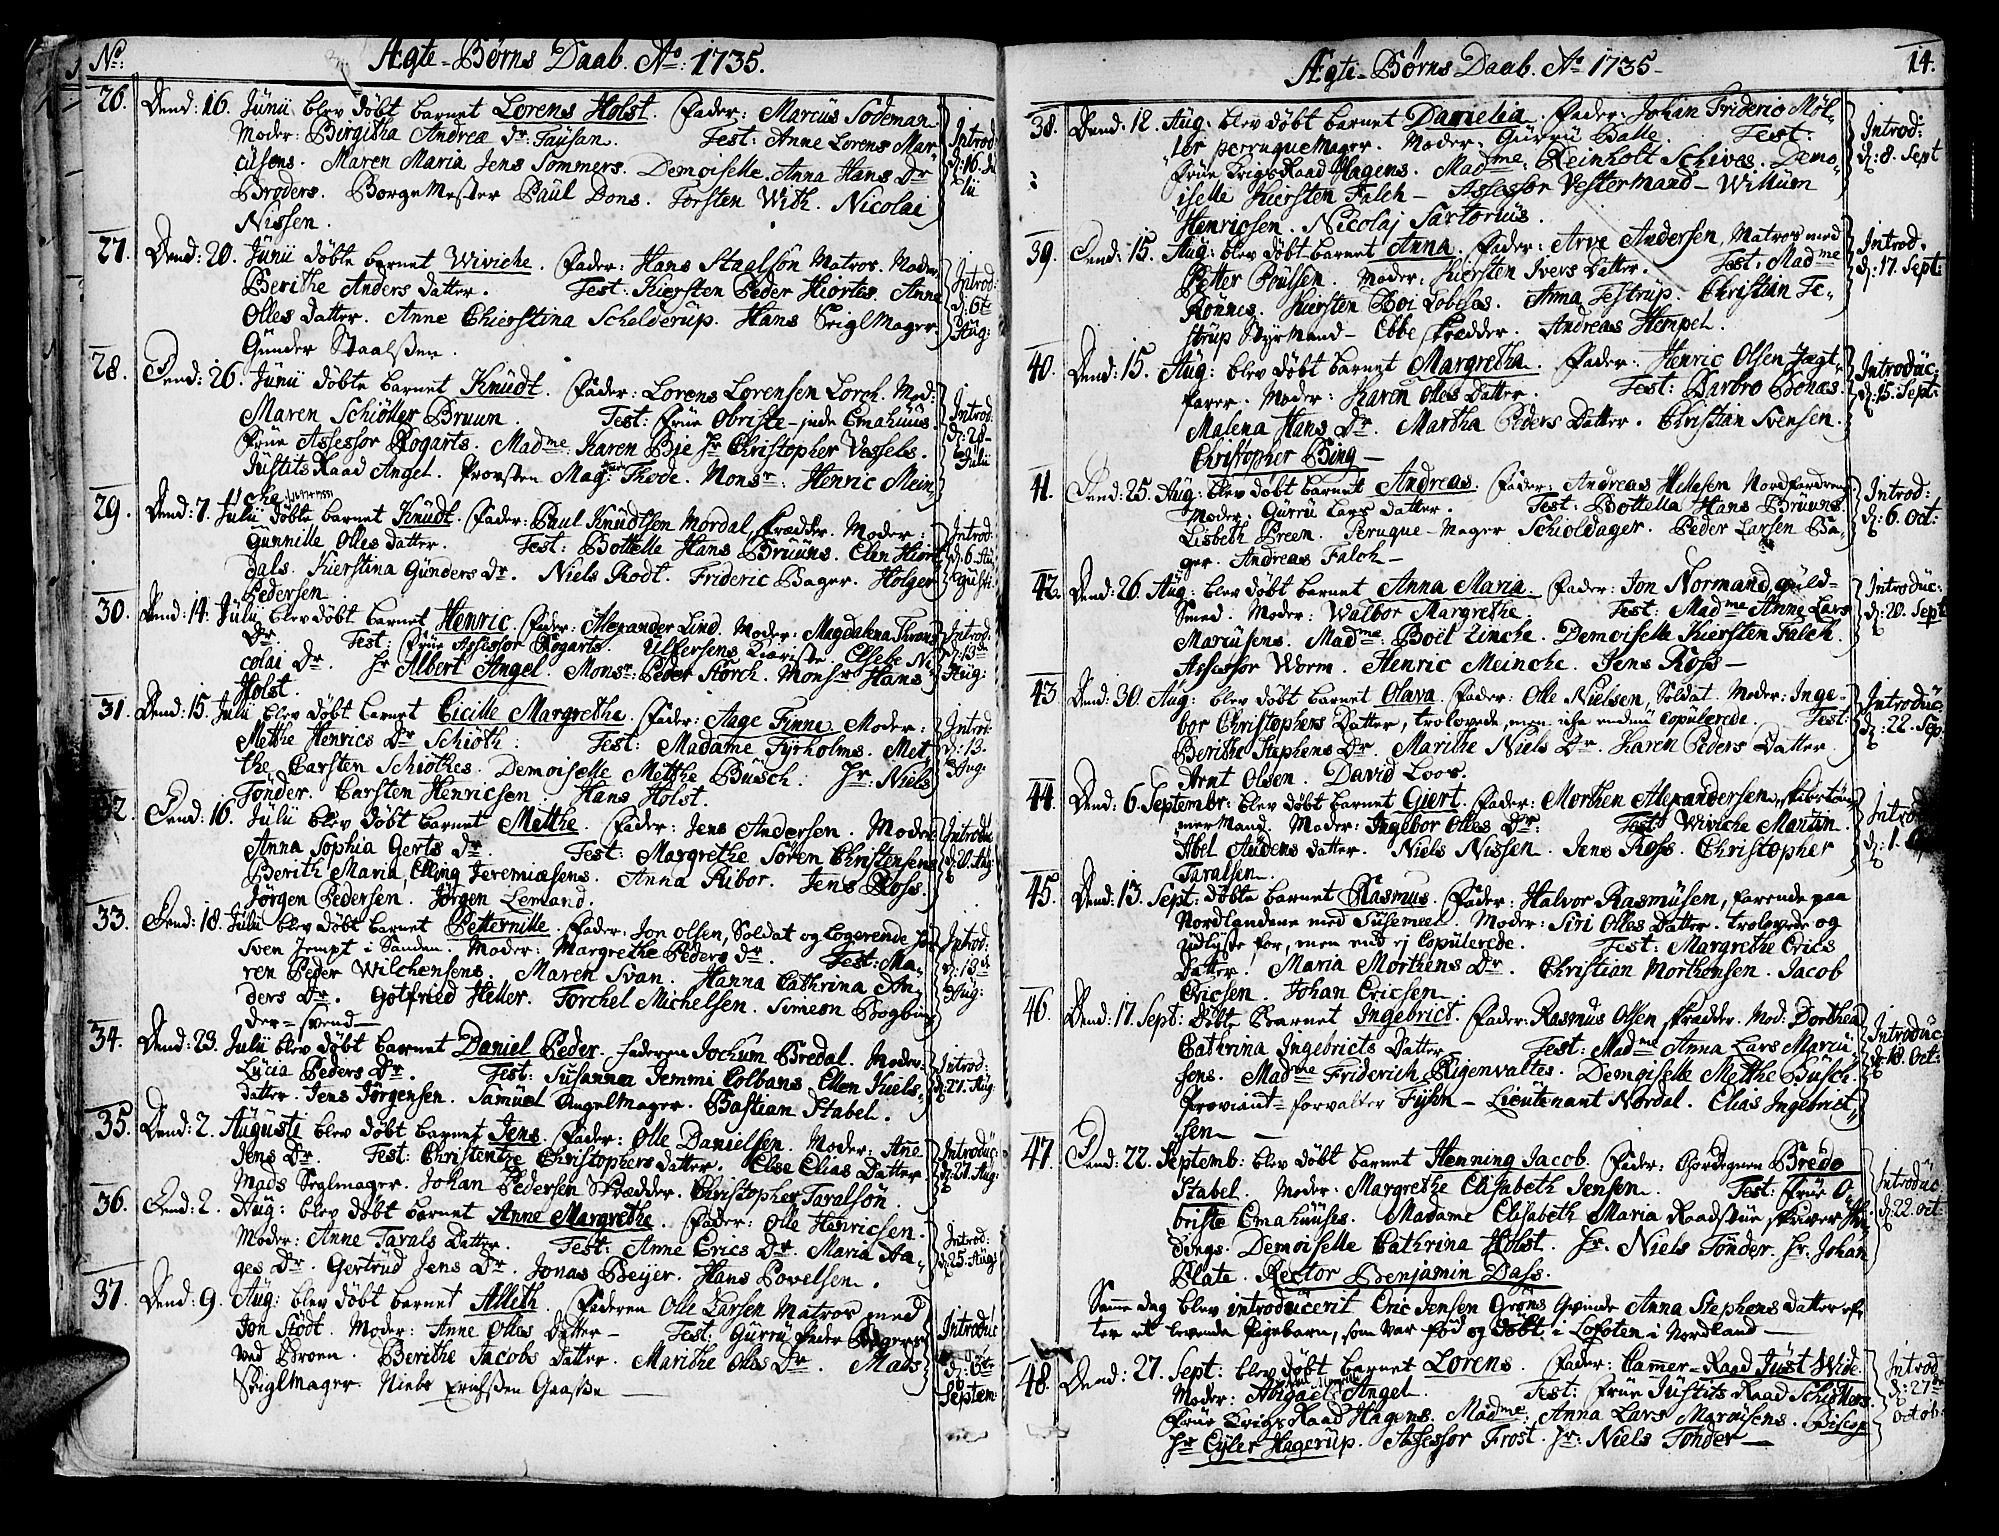 No: Ægte-Børns Daab. Ao: 1735.
26. Dend: 16. Junii blev døbt barnet Lorens Holst. Fader: Marcus Sodeman
Moder: Birgitha Andrea Dr Fausan. Test: Anne Lorens Mar-
cusens. Maren Maria Jens Sommers. Demoiselle Anna Hans Dr
Broders. BorgeMester Paul Dons. Torsten With. Nicolai
Nissen.
Introd:
d: 16. Ju
lii
27. Dend: 20. Junii døbte barnet Wiviche. Fader: Hans Staalson Matros. Moder
Berithe Anders Datter. Test: Kiersten Peder Hiortes. Anne
Olles Datter. Anne Chierstina Schelderup. Hans SeiglMager
Gunder Staalssen.
Introd:
d: 6te
Aug:
28. Dend: 26. Junii døbte barnet Knudt. Fader: Lorens Lorensen Lorch. Mod:
Maren Schiøller Bruun. Test: Frue Obriste-inde Emahuus.
Frue Assessor Rogarts. Madme Karen Bie Hr Christopher Wessels.
JustitsRaad Angel. Provsten Mag: Thode. Monsr: Henric Mein
cke
Introd:
d: 28
Julii
29. Dend: 7. Julii døbte barnet Knudt. Fader: Paul Knudtsen Mordal, skrædder. Moder:
Gunnille Olles Datter. Test: Bottelle Hans Bruuns. Elen Hiort
dals. Kierstina Gunders Dr. Niels Rodt. Frideric Bager. Holger
Pedersen
Introd:
d: 6. Au
gusti
30. Dend: 14. Julii blev døbt barnet Henric. Fader: Alexander Lind. Moder: Magdalena Frans
Dr. Test: Frue Assessor Rogarts. Ulfersens Kiæriste. Elsebe Ni
colai Dr. Hr Albert Angel. Monsr: Peder Storch. Monsr Hans
Holst.
Introd:
d: 13de
Aug:
31. Dend: 15. Julii blev døbt barnet Cicille Margrethe. Fader: Aage Finne Moder:
Methe Henrics Dr Schiøth. Test: Madame Tyrholms. Met
the Carsten Schiøthes. Demoiselle Metthe Busch. Hr: Niels
Tønder. Carsten Henricsen Hans Holst.
Introd:
d: 13.
Aug:
32. Dend: 16. Julii blev døbt barnet Metthe. Fader: Jens Andersen. Moder
Anna Sophia Gerts Dr. Test: Margrethe Søren Christensens
Berith Maria Elling Jeremiæsens. Anna Ribor. Jens Ross.
Jørgen Pedersen. Jørgen Lemand.
Introdu
d: 20. Aug:
33. Dend: 18. Julii blev døbt barnet Petternille. Fader: Jon Olsen, Soldat og Logerende hos
Sven Jempt i Sanden. Moder: Margrethe Peders Dr. Test: Ma-
ren Peder Wilchensens. Maren Svan. Hanna Cathrina An-
ders Dr. Gotfried Heller. Torchel Michelsen. Simeon Bogbin
der-svend
Introd:
d: 13de
Aug:
34. Dend: 23. Julii blev døbt barnet Daniel Peder. Faderen Jochum Bredal. Moder
Lucia Peders Dr. Test: Susanna Jemmi Colbans. Ellen Kiels-
datter. Jens Jørgensen. Samuel AngelMager. Bastian Stabel.
Introd:
d: 21. Aug
35. Dend: 2. Augusti blev døbt barnet Jens. Fader: Olle Danielsen. Moder: Ane
Jens Dr. Test: Christentze Christophers Datter. Else Elias Datter
Mads Seglmager. Johan Pedersen Skrædder. Christopher Taralson
Introduc
d: 21. Aug:
36. Dend: 2. Aug: blev døbt barnet Anne Margrethe. Fader: Olle Henricsen.
Moder: Anne Tarals Datter. Test: Anne Erics Dr. Maria Aa-
ges Dr. Gertrud Jens Dr. Jonas Beyer. Hans Povelsen.
Introd:
d: 25. Aug
37. Dend: 9. Aug: blev døbt barnet Alleth. Faderen Olle Larsen Matros med
Jon Stødt. Moder: Anne Olles Datter- Test: Gurru Peder Segers
ved Broen. Berithe Jacobs Datter. Marithe Olles Dr. Mads
SeiglMager. Niels
Introduc
d: 6te
Septem:
Ægte-Børns Daab. Ao 1735- 14.
38. Dend: 12. Aug: blev døbt barnet Damelia. Fader: Johan Frideric Møl-
ler perruqueMager. Moder: Gurru Balle. Test:
Frue KrigsRaad Hagens. Madme: Reinholt Schives. Demo-
iselle Kiersten Falch- Assessor Vestermand- Willum
Henricsen. Nicolaj Sartorius.
Introd:
d: 8. Sept
39. Dend: 15. Aug: blev døbt barnet Anna. Fader: Arve Andersen, Matros med
Petter Poulsen. Moder: Kiersten Ivers Datter. Test: Madme
Rønnes. Kiersten Boi Lobeses. Anna Testrup. Christian Te-
strup Styrmand- Ebbe skrædder. Andreas Hempel.
Introd.
d: 17. Sept:
40. Dend: 15. Aug: blev døbt barnet Margretha. Fader: Henric Olsen Jægt-
farer. Moder: Karen Olles Datter. Test: Barbro Bonas.
Malena Hans Dr. Martha Peders Datter. Christian Svensen.
Christopher Bing-
Introduc:
d: 15. Sept:
41. Dend: 25. Aug: blev døbt barnet Andreas. Fader: Andreas Hellesen Nordfarere
Moder: Gurru Lars Datter. Test: Bottella Hans Bruuns.
Lisbeth Breen. Peruque-Mager Schioldager. Peder Larsen Ba-
ger. Andreas Falch-
Introd:
d: 6. Oct:
42. Dend: 26. Aug: blev døbt barnet Anna Maria. Fader: Jon Normand, guld-
Smed. Moder: Walbor Margrethe Test: Madme Anne Lars
Marcusens. Madme: Boel Lincke. Demoiselle Kiersten Falch.
Assessor Worm. Henric Meincke. Jens Ross-
Introduc:
d: 20. Sept
43. Dend: 30. Aug: blev døbt barnet Olava. Fader: Olle Nielsen, Soldat. Moder: Inge-
bor Christophers Datter, trolovede, men icke endnu copulerede. Test:
Berithe Stephens Dr. Marithe Niels Dr. Karen Peders Datter.
Arnt Olsen. David Loos.
Introduc:
d: 22. Sep
44. Dend: 6. Septembr: blev døbt barnet Giert. Fader: Morthen Alexandersen, skibstøm
mermand. Moder: Ingebor Olles Dr: Test: Wiviche Martin.
Abel Audens Datter. Niels Nissen. Jens Ross. Christopher
Taralsen
Introd
d: 1.
45. Dend: 13. Sept: døbte barnet Rasmus. Fader: Halvor Rasmusen, farende paa
Nordlandene med Susemeel. Moder: Siri Olles Datter. trolovede og
udlyste for, men end ej copulerede. Test: Margrethe Erics
Datter. Maria Morthens Dr. Christian Morthensen. Jacob
Ericsen. Johan Ericsen
46. Dend: 17. Sept: Døbte Barnet Ingebrict. Fader: Rasmus Olsen skrædder. Mod: Dorthea
Cathrina Ingebricts Datter Test: Madme Anna Lars Marcu
sens. Madme Friderich Rigenvaltes. Demoiselle Metthe Busch.
Proviant-forvalter Fuhn- Lieutenant Nordal. Elias Ingebrict
sen-
Introduc
d: 18. Oct:
47. Dend: 22. Septemb: blev døbt barnet Henning Jacob. Fader: Chordegnen Bredo
Stabel. Moder: Margrethe Elisabeth Jensen. Test: Frue O-
briste Emahuuses. Madame Elisabeth Maria Raadstue skriver
dings. Demoiselle Cathrina Holst. Hr. Niels Tønder. Hr. Johan
Plate. Rector Benjamin Dass.
Introduc
d: 22. Oct:
Samme dag blev introducerit Eric Jensen Grøns Qvinde Anna Stephens Datter ef-
ter et levende Pigebarn, som var fød og døbt i Lofoten i Nordland-
48. Dend: 27. Sept: blev døbt barnet Lorens. Fader: Cammer-Raad Just Wide
Moder: Abigael Angel. Test: Frue JustitsRaad Schiøllers
Frue KrigsRaad Hagens. Madme: Anna Lars Marcusens. Biscop
Hr Eyler Hagerup. Assessor Frost. Hr: Niels Tønder-
Introd
d: 27de
Octob: